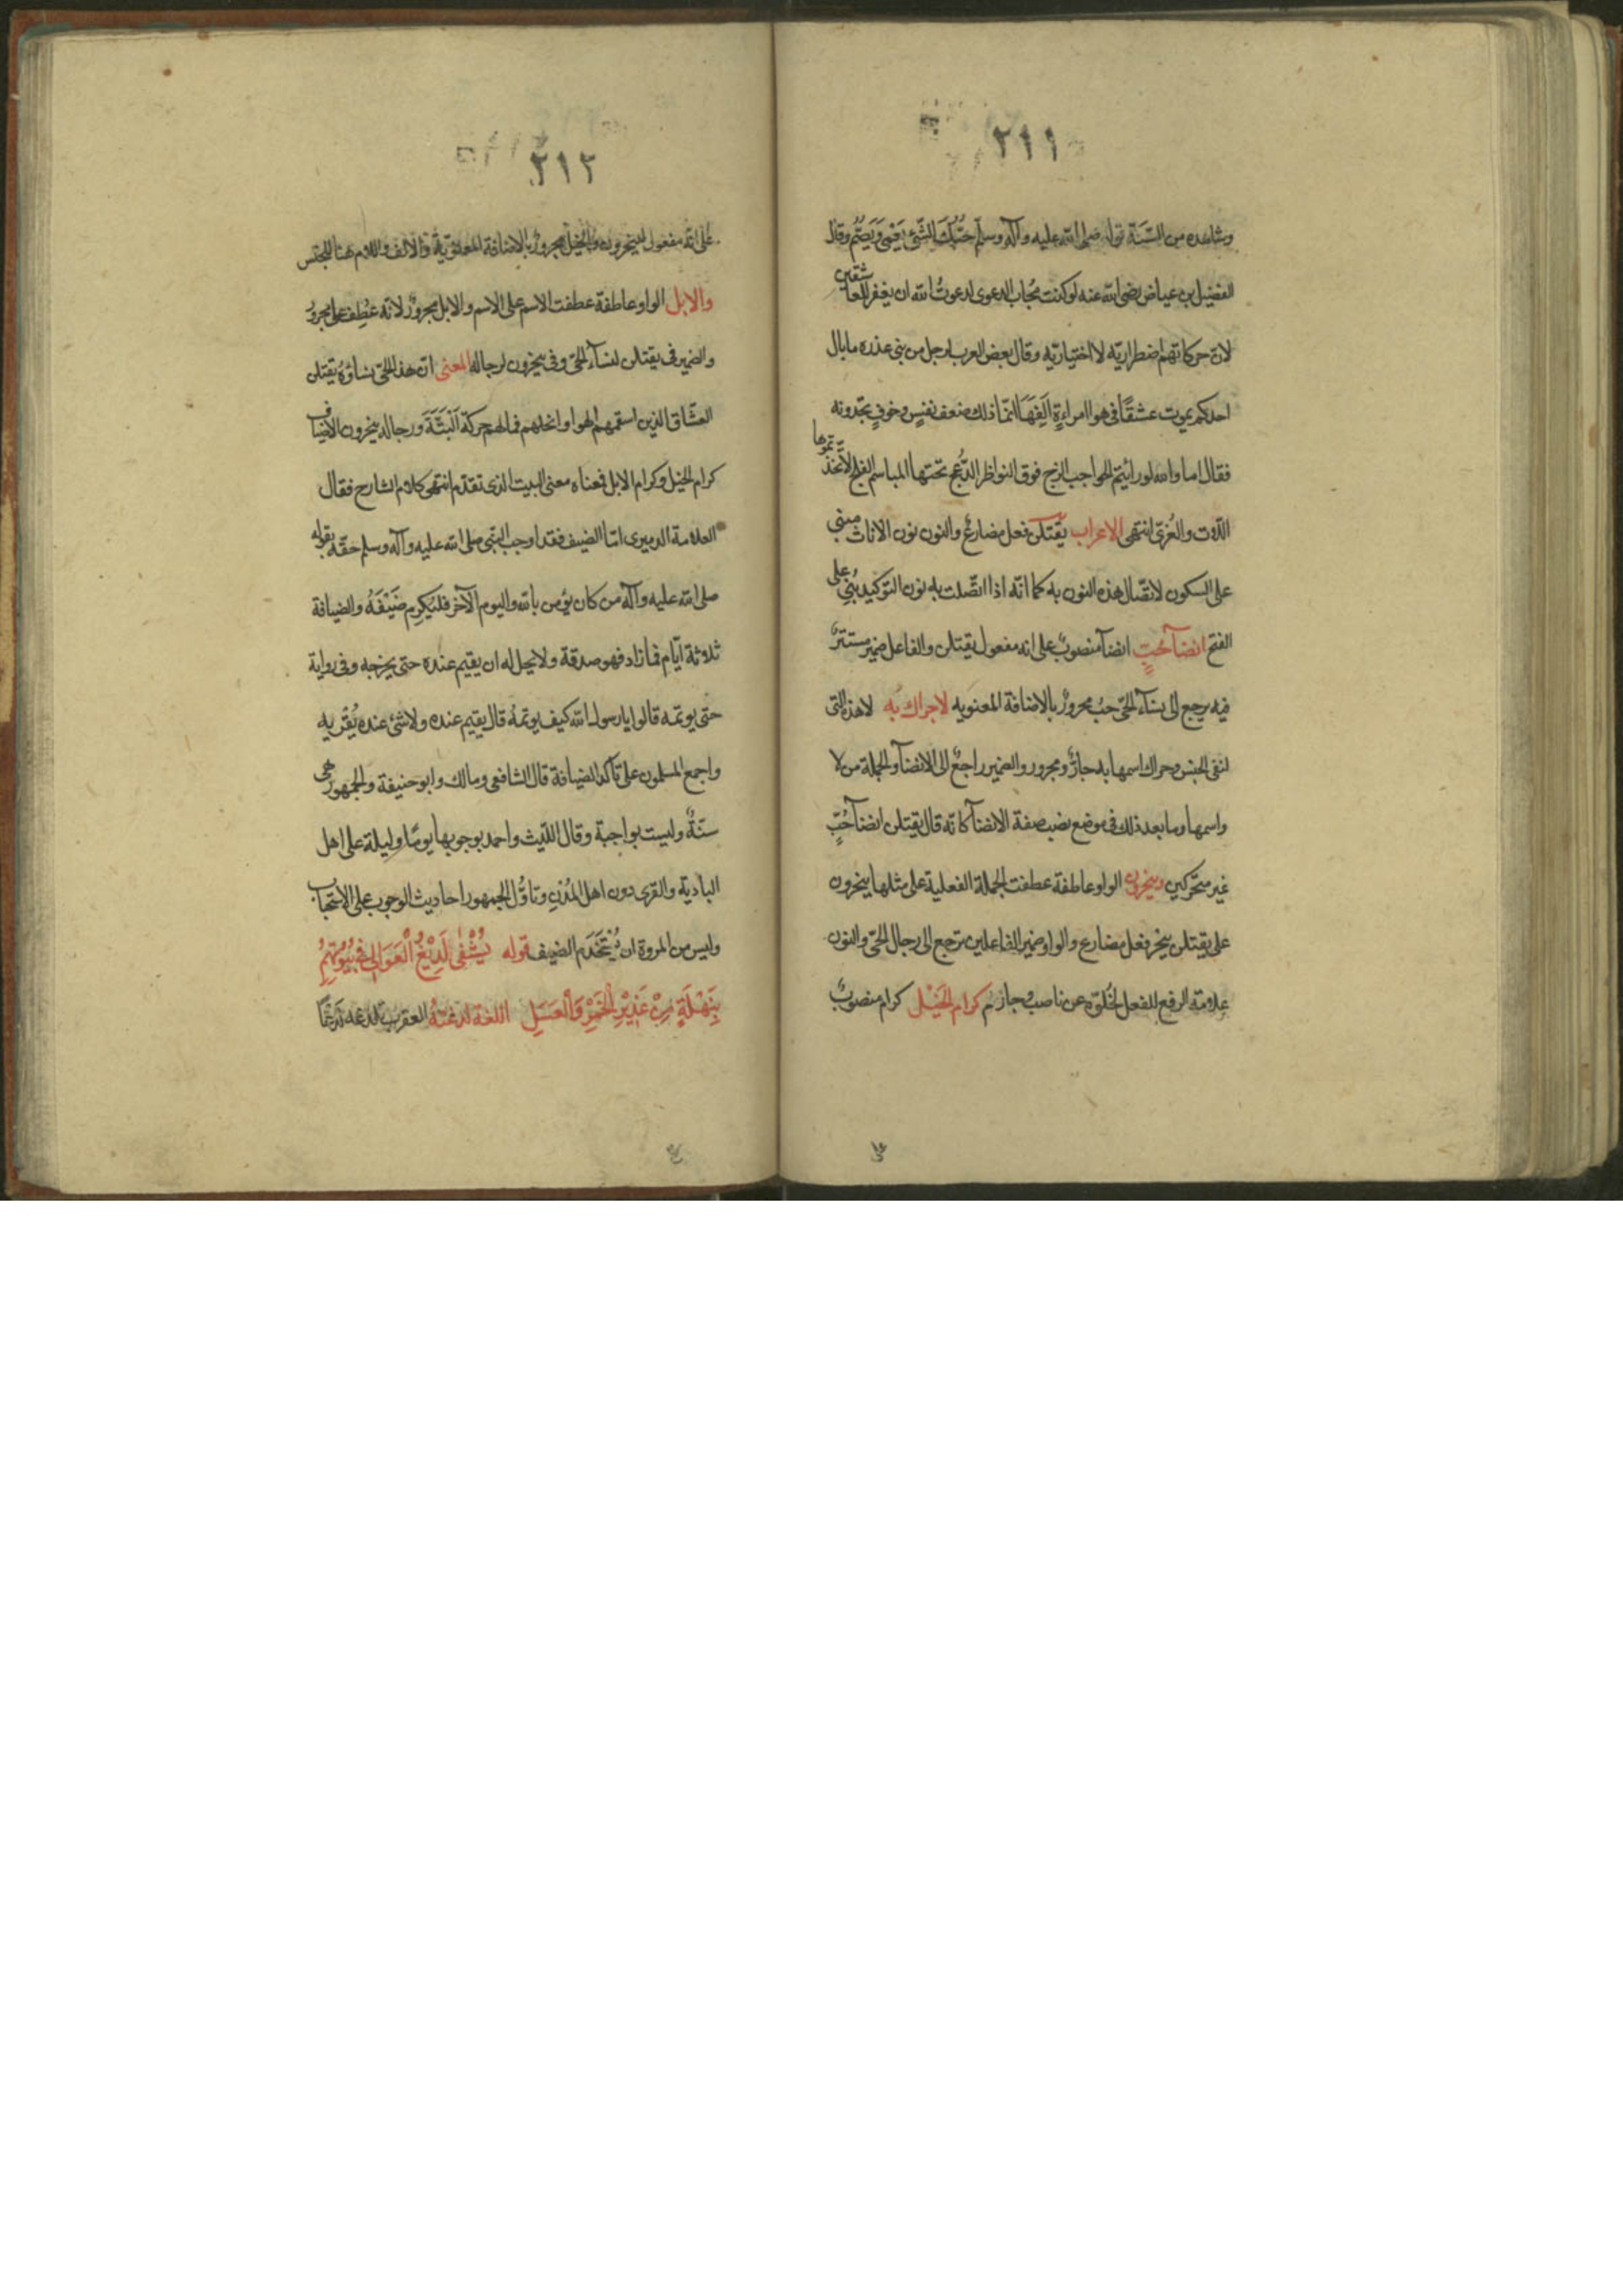 ٢١١
وشاهده من السّنة قوله صلى الله عليه وآله وسلم حُبّكَ الشّئ يعمى ويصمّ وقال
الفضيل بن عياض رضى الله عنه لو كنت مُجاب الدعوى لدعوتُ الله ان يغفر للعاشقين
لانّ حركاتهم اضطراريّه لا اختياريّه وقال بعض العرب لرجل من بنى عذره ما بال
احدكم يموت عشقًا فى هوا امراءةٍ اَلِفَهَا انّما ذلك ضعف نفسٍ وخوفٍ تجدونه
فقال اما والله لو رائيتم الحواجب الزج فوق النواظر الدُّعج تحتها المباسم الفلج لاتّخذتموها
اللّات والعُزّى انتهى الاعراب يقتلن فعل مضارعٌ والنون نون الاناث مبنى
على السكون لاتّصال هذه النون به كما انّه اذا اتّصلت به نون التوكيد بُنِىَ على
الفتح انضآء حُبٍ انضآء منصوبٌ على انه مفعول يقتلن والفاعل ضمير مستترٌ
فيه يرجع الى نسآء الحىّ حبٍ مجرورٌ بالاضافة المعنويه لا حراك به لا هذه التى
لنفى الجنس وحراك اسمها به جارٌّ ومجرور والضمير راجعٌ الى الانضآء والجملة من لا
واسمها وما بعد ذلك فى موضع نصب صفة الانضآء كانّه قال يقتلن انضآء حُبٍّ
غير متحّركين وينحرون الواو عاطفة عطفت الجملة الفعلية على مثلها ينحرون
على يقتلن ينحر فعل مضارع والواو ضمير الفاعلين ترجع الى رجال الحىّ والنون
علامة الرفع للفعل لخُلوّه عن ناصب وجازم كرام الخَيْل كرام منصوبٌ
٢١٢
على انّه مفعول لينحرون والخيل مجرورٌ بالاضافة المعنويّة والالف واللام هنا للجنس
والابل الواو عاطفة عطفت الاسم على الاسم والابل مجرورٌ لانّه عُطِف على مجرورٌ
والضمير فى يقتلن لنسآء الحىّ وفى ينحرون لرجاله المعنى انّ هذا الحىّ نساؤهُ يقتلن
العشّاق الذين اسقمهم الهوا وانحلهم فما لهم حركة اَلْبَتَّةَ ورجاله ينحرون الاضياف
كرام الخيل وكرام الابل فمعناه معنى البيت الذى تقدّم انتهى كلام الشارح فقال
العلامة الدميرى امّا الضيف فقد اوجب النبّى صلى الله عليه وآله وسلم حقّه بقوله
صلى الله عليه وآله من كان يؤمن بالله واليوم الآخر فليكرم ضَيْفَهُ والضيافة
ثلاثة ايّام فما زاد فهو صدقة ولا يحل له ان يقيم عنده حتى يخرجه وفى رواية
حتى يوثمه قالوا يا رسول الله كيف يوثمهُ قال يقيم عنده ولا شئ عنده يُقْريه
واجمع المسلمون على تأكد الضيافة قال الشافعى ومالك وابو حنيفة والجمهور هى
سنّةٌ وليست بواجبة وقال اللّيث واحمد بوجوبها يومًا وليلة على اهل
البادية والقرى دون اهل المُدُن وتاوَّل الجمهور احاديث الوجوب على الاستحباب
وليس من المروة ان يُتَخَدَّم الضيف قوله يُشْفٰى لَدِيْغُ الْعَوَالِى فِى بُيُوْتِهِمُ
بِنَهْلَةٍ مِنْ غَدِيْرِ الْخَمْرِ وَالْعَسَلِ اللغة لدغتهُ العقرب تلدغه لَدْغًا